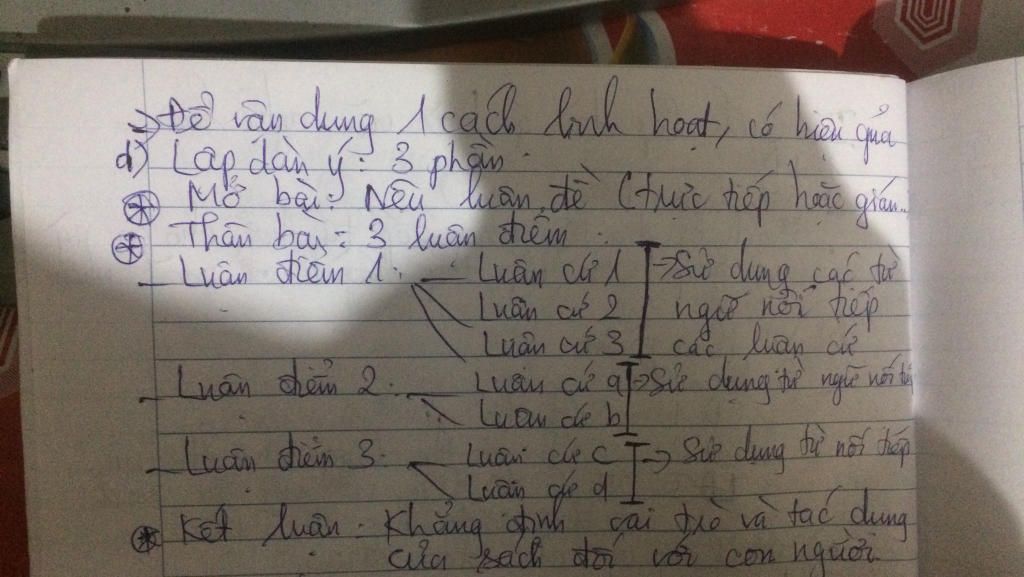 → Để vận dụng 1 cách linh hoạt, có hiệu quả
d) Lập dàn ý: 3 phần.
⊛ Mở bài: Nêu luận đề (trực tiếp hoặc gián..
⊛ Thân bài: 3 luận điểm.
- Luận điểm 1. - Luận cứ 1 → Sử dụng các từ
Luận cứ 2 ngữ nối tiếp
Luận cứ 3 các luận cứ
- Luận điểm 2. - Luận cứ a → Sử dụng từ ngữ nối
Luận cứ b
- Luận điểm 3. Luận cứ c → Sử dụng từ nối tiếp
Luận cứ d
⊛ Kết luận: Khẳng định vai trò và tác dụng
của sách đối với con người.